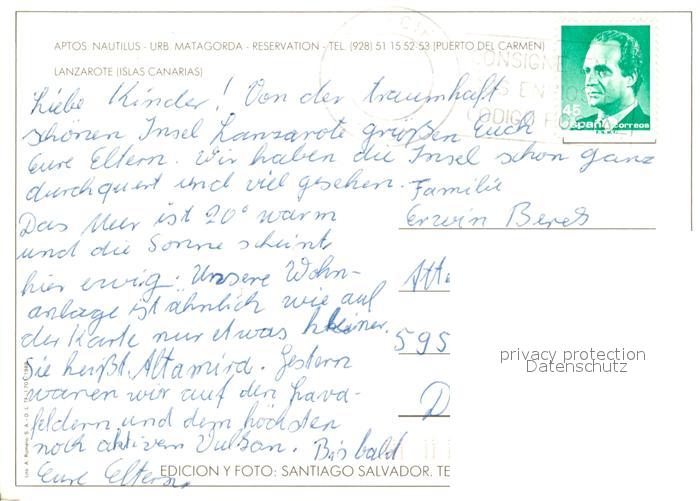 APTOS. NAUTILUS - URB. MATAGORDA - RESERVATION - TEL. (928) 51 15 52-53 (PUERTO DEL CARMEN)
LANZAROTE (ISLAS CANARIAS)
CONSIGNE
EN
CODIGO
45
España correos
Liebe Kinder! Von der traumhaft
schönen Insel Lanzarote grüßen Euch
Eure Eltern. Wir haben die Insel schon ganz
durchquert und viel gesehen.
Das Meer ist 20° warm
und die Sonne scheint
hier ewig. Unsere Wohn-
anlage ist ähnlich wie auf
der Karte nur etwas kleiner.
Sie heißt Altamira. Gestern
waren wir auf den Lava-
feldern und dem höchsten
noch aktiven Vulkan. Bis bald
Eure Eltern.
Familie
Erwin
595
D
privacy protection
Datenschutz
EDICION Y FOTO: SANTIAGO SALVADOR. TE